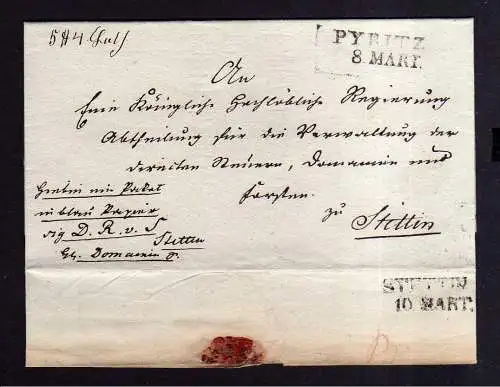 PYRITZ
8. MART.
An
Eine Königliche Hochlöbliche Regierung
Abtheilung für die Verwaltung der
direkten Steuern, Domainen und
Forsten.
zu
Stettin
Hiebei ein Paket
in blau Papier
sig D. R. v. S
Stettin
Domainen
STETTIN
10 MART.